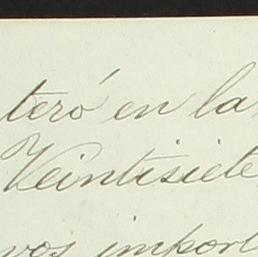 teró en la
Veintisiete
vos import